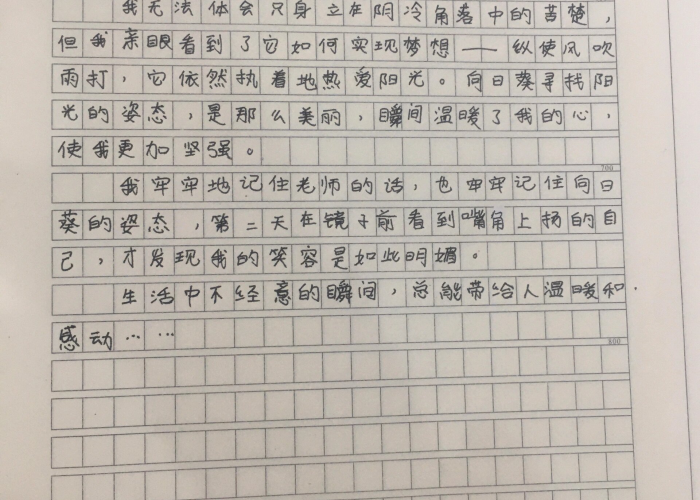 我无法体会只身立在阴冷角落中的苦楚，
但我亲眼看到了它如何实现梦想——纵使风吹
雨打，它依然执着地热爱阳光。向日葵寻找阳
光的姿态，是那么美丽，瞬间温暖了我的心，
使我更加坚强。
700
我牢牢地记住老师的话，也牢牢记住向日
葵的姿态，第二天在镜子前看到嘴角上扬的自
己，才发现我的笑容是如此明媚。
生活中不经意的瞬间，总能带给人温暖和
感动……
800